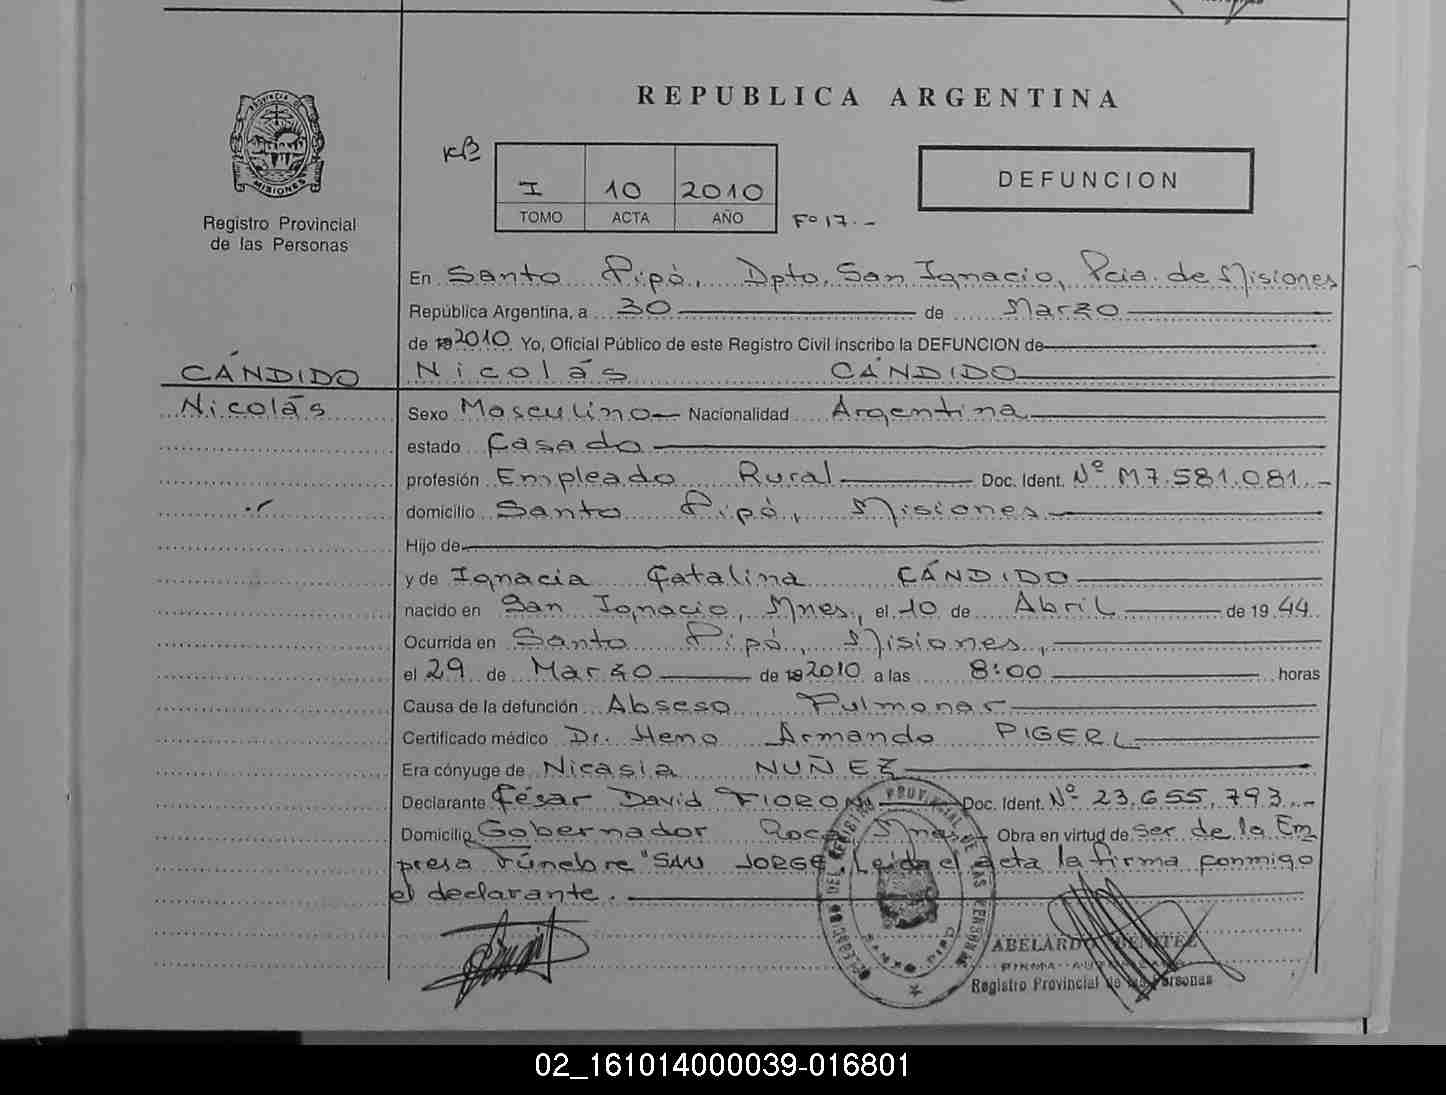 REPUBLICA ARGENTINA
KB
I 10 2010
TOMO ACTA AÑO
Fº 17.-
DEFUNCION
PROVINCIA DE
MISIONES
Registro Provincial
de las Personas
CÁNDIDO
Nicolás
En Santo Pipó, Dpto. San Ignacio, Pcia. de Misiones
República Argentina, a 30 de Marzo
de 192010 Yo, Oficial Público de este Registro Civil inscribo la DEFUNCION de
Nicolás CÁNDIDO
Sexo Masculino Nacionalidad Argentina
estado Casado
profesión Empleado Rural Doc. Ident. Nº M7.581.081.-
domicilio Santo Pipó, Misiones
Hijo de
y de Ignacia Catalina CÁNDIDO
nacido en San Ignacio, Mnes., el 10 de Abril de 19 44
Ocurrida en Santo Pipó, Misiones,
el 29 de Marzo de 192010 a las 8:00 horas
Causa de la defunción Abseso Pulmonar
Certificado médico Dr. Heno Armando PIGERL
Era cónyuge de Nicasia NUÑEZ
Declarante César David FIORONI Doc. Ident. Nº 23.655.793.-
Domicilio Gobernador Roca Mnes. Obra en virtud de Ser de la Em
presa Fúnebre "SAN JORGE" Leida el acta la firma conmigo
el declarante.
DELEGACION DEL REGISTRO PROVINCIAL DE LAS PERSONAS
SANTO PIPO
ABELARDO BENITEZ
FIRMA AUTORIZADA
Registro Provincial de las Personas
02_161014000039-016801